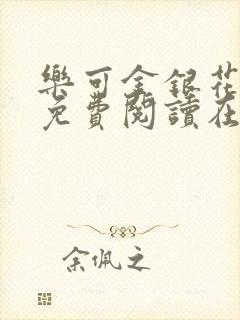 樂可金銀花
免費閱讀在
余佩之